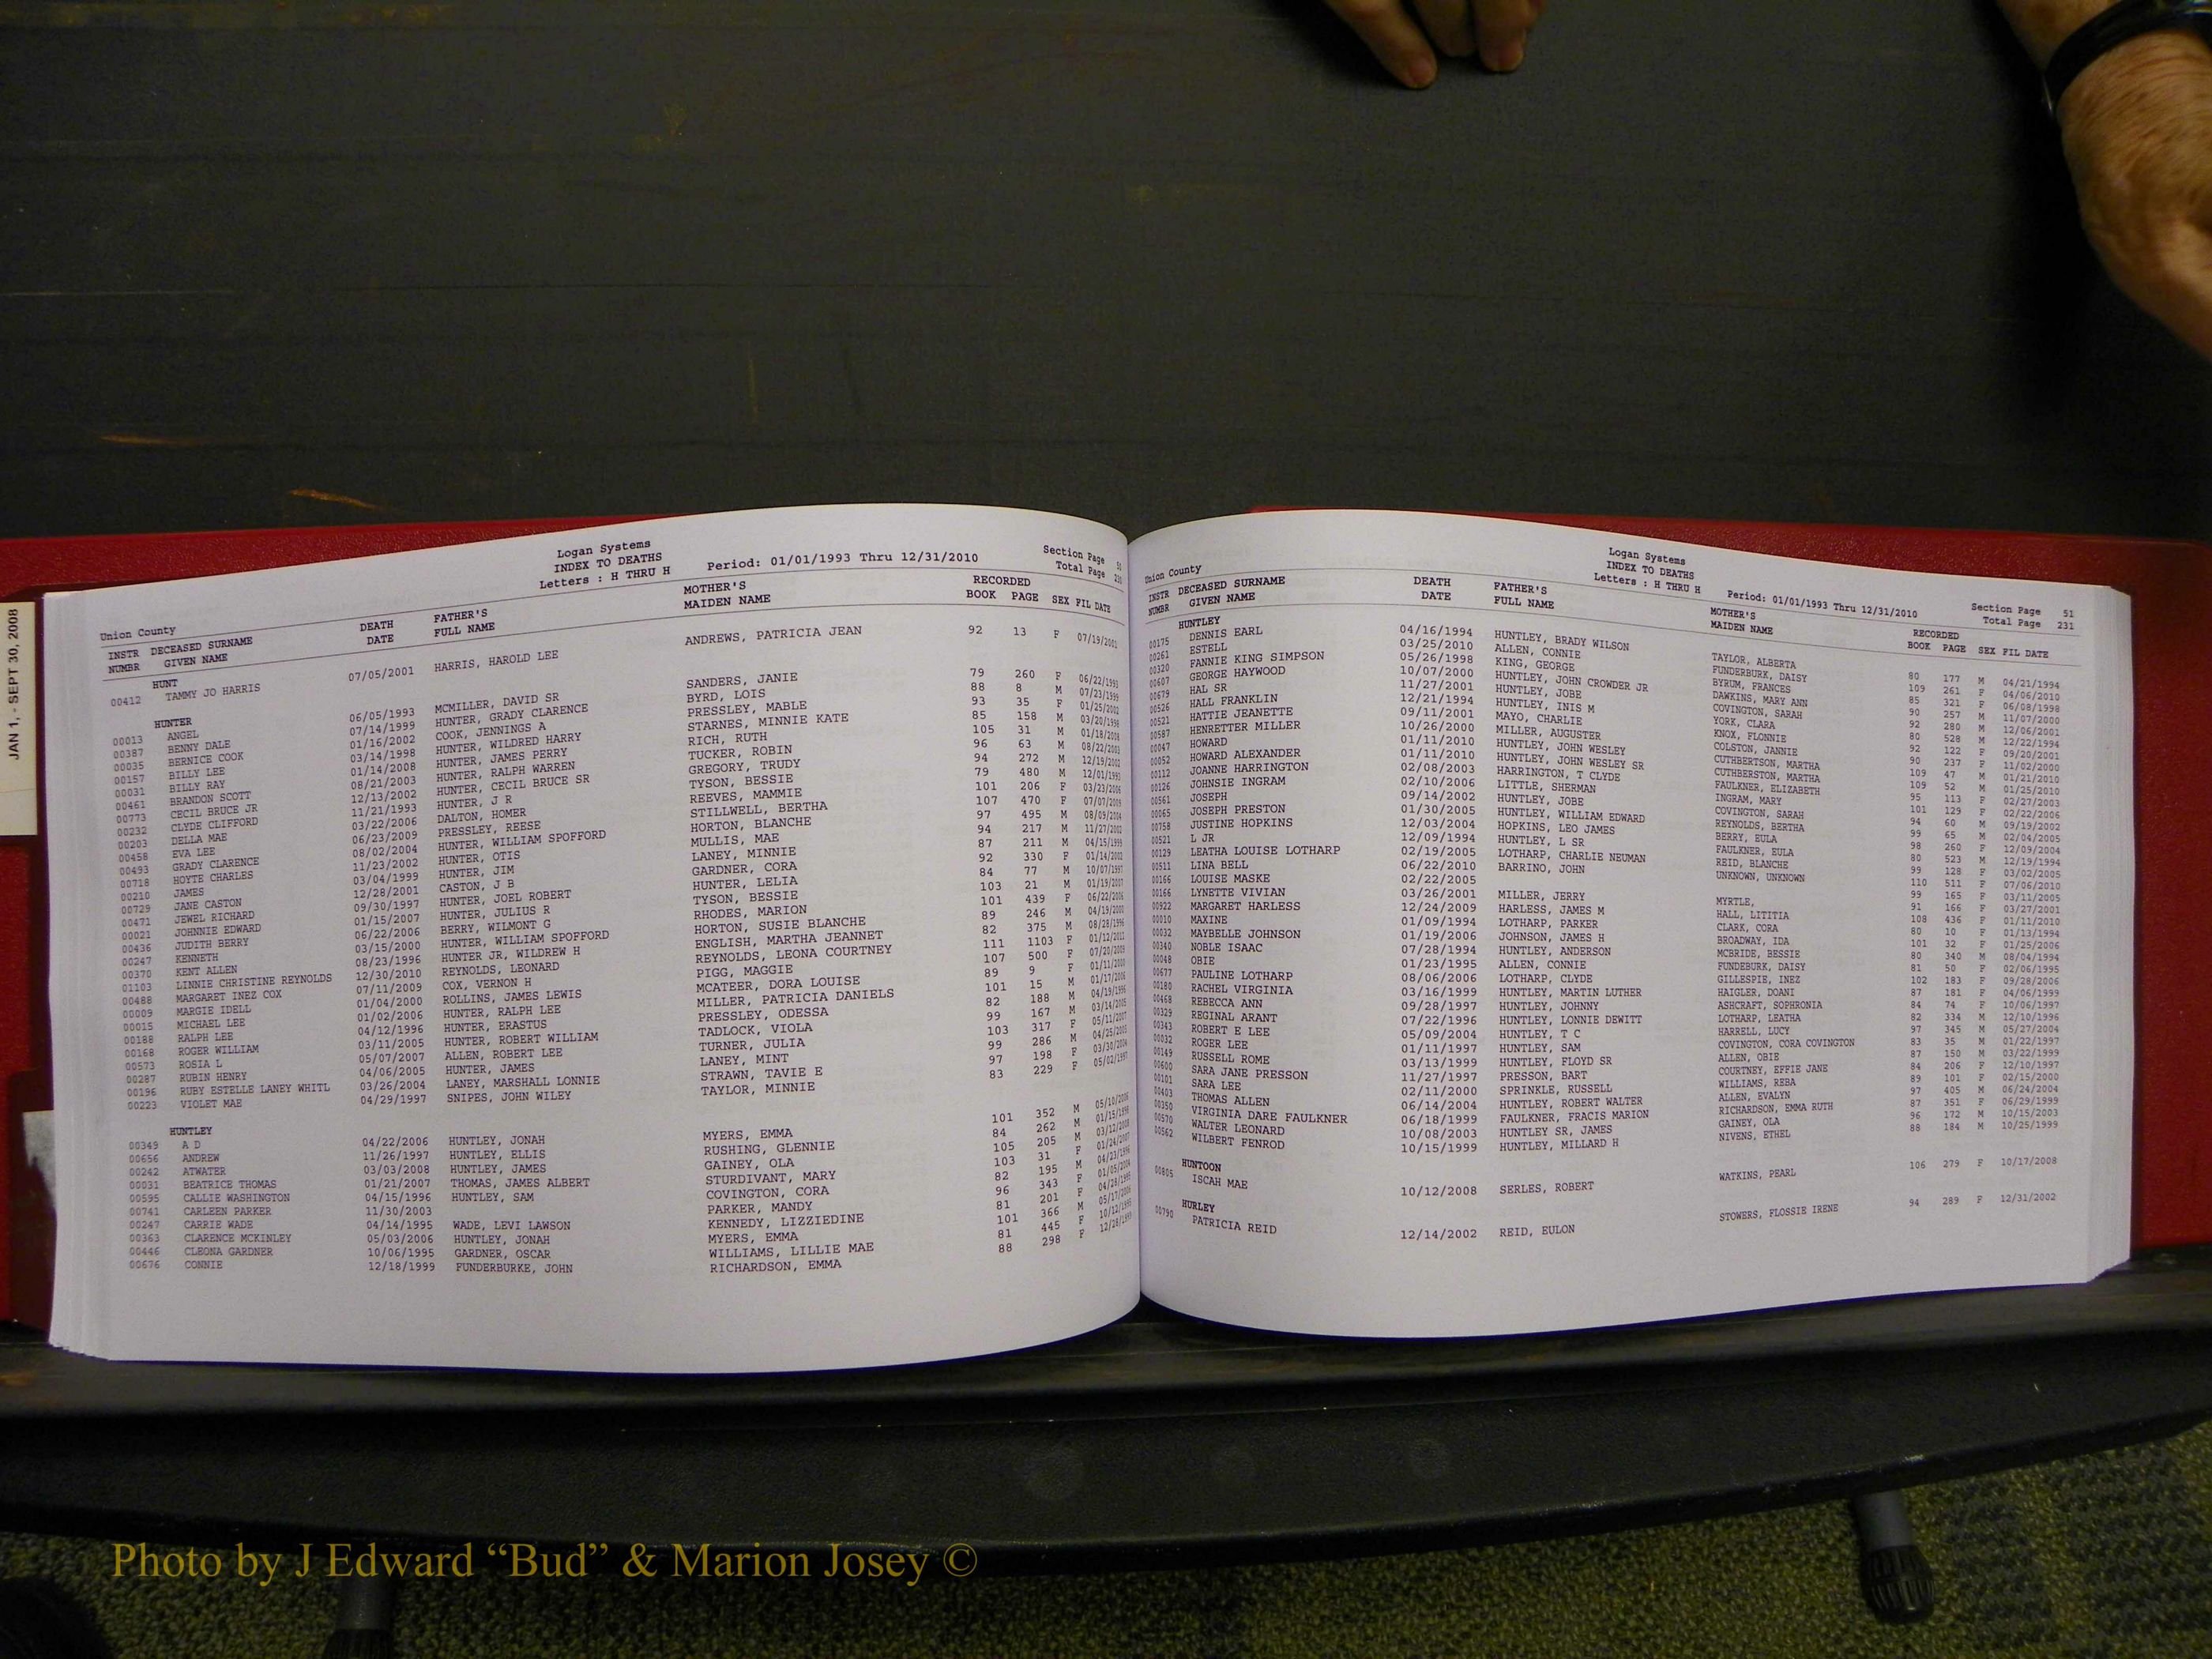 JAN 1, - SEPT 30, 2008
Logan Systems
INDEX TO DEATHS
Letters : H THRU H Period: 01/01/1993 Thru 12/31/2010
Section Page
Total Page
Union County
INSTR NUMBR DECEASED SURNAME GIVEN NAME DEATH DATE FATHER'S FULL NAME MOTHER'S MAIDEN NAME RECORDED BOOK PAGE SEX FIL DATE
HUNT
00412 TAMMY JO HARRIS 07/05/2001 HARRIS, HAROLD LEE ANDREWS, PATRICIA JEAN 92 13 F 07/19/2001
HUNTER
00013 ANGEL 06/05/1993 MCMILLER, DAVID SR SANDERS, JANIE 79 260 F 06/22/1993
00387 BENNY DALE 07/14/1999 HUNTER, GRADY CLARENCE BYRD, LOIS 88 8 M 07/23/1999
00035 BERNICE COOK 01/16/2002 COOK, JENNINGS A PRESSLEY, MABLE 93 35 F 01/25/2002
00157 BILLY LEE 03/14/1998 HUNTER, WILDRED HARRY STARNES, MINNIE KATE 85 158 M 03/20/1998
00031 BILLY RAY 01/14/2008 HUNTER, JAMES PERRY RICH, RUTH 105 31 M 01/18/2008
00461 BRANDON SCOTT 08/21/2003 HUNTER, RALPH WARREN TUCKER, ROBIN 96 63 M 08/22/2003
00773 CECIL BRUCE JR 12/13/2002 HUNTER, CECIL BRUCE SR GREGORY, TRUDY 94 272 M 12/19/2002
00232 CLYDE CLIFFORD 11/21/1993 HUNTER, J R TYSON, BESSIE 79 480 M 12/01/1993
00203 DELLA MAE 03/22/2006 DALTON, HOMER REEVES, MAMMIE 101 206 F 03/23/2006
00458 EVA LEE 06/23/2009 PRESSLEY, REESE STILLWELL, BERTHA 107 470 F 07/07/2009
00493 GRADY CLARENCE 08/02/2004 HUNTER, WILLIAM SPOFFORD HORTON, BLANCHE 97 495 M 08/09/2004
00718 HOYTE CHARLES 11/23/2002 HUNTER, OTIS MULLIS, MAE 94 217 M 11/27/2002
00210 JAMES 03/04/1999 HUNTER, JIM LANEY, MINNIE 87 211 M 04/15/1999
00729 JANE CASTON 12/28/2001 CASTON, J B GARDNER, CORA 92 330 F 01/14/2002
00471 JEWEL RICHARD 09/30/1997 HUNTER, JOEL ROBERT HUNTER, LELIA 84 77 M 10/07/1997
00021 JOHNNIE EDWARD 01/15/2007 HUNTER, JULIUS R TYSON, BESSIE 103 21 M 01/19/2007
00436 JUDITH BERRY 06/22/2006 BERRY, WILMONT G RHODES, MARION 101 439 F 06/22/2006
00247 KENNETH 03/15/2000 HUNTER, WILLIAM SPOFFORD HORTON, SUSIE BLANCHE 89 246 M 04/19/2000
00370 KENT ALLEN 08/23/1996 HUNTER JR, WILDREW H ENGLISH, MARTHA JEANNET 82 375 M 08/28/1996
01103 LINNIE CHRISTINE REYNOLDS 12/30/2010 REYNOLDS, LEONARD REYNOLDS, LEONA COURTNEY 111 1103 F 01/12/2011
00488 MARGARET INEZ COX 07/11/2009 COX, VERNON H PIGG, MAGGIE 107 500 F 07/20/2009
00009 MARGIE IDELL 01/04/2000 ROLLINS, JAMES LEWIS MCATEER, DORA LOUISE 89 9 F 01/11/2000
00015 MICHAEL LEE 01/02/2006 HUNTER, RALPH LEE MILLER, PATRICIA DANIELS 101 15 M 01/17/2006
00188 RALPH LEE 04/12/1996 HUNTER, ERASTUS PRESSLEY, ODESSA 82 188 M 04/19/1996
00168 ROGER WILLIAM 03/11/2005 HUNTER, ROBERT WILLIAM TADLOCK, VIOLA 99 167 M 03/14/2005
00573 ROSIA L 05/07/2007 ALLEN, ROBERT LEE TURNER, JULIA 103 317 F 05/11/2007
00287 RUBIN HENRY 04/06/2005 HUNTER, JAMES LANEY, MINT 99 286 M 04/25/2005
00196 RUBY ESTELLE LANEY WHITL 03/26/2004 LANEY, MARSHALL LONNIE STRAWN, TAVIE E 97 198 F 03/30/2004
00223 VIOLET MAE 04/29/1997 SNIPES, JOHN WILEY TAYLOR, MINNIE 83 229 F 05/02/1997
HUNTLEY
00349 A D 04/22/2006 HUNTLEY, JONAH MYERS, EMMA 101 352 M 05/10/2006
00656 ANDREW 11/26/1997 HUNTLEY, ELLIS RUSHING, GLENNIE 84 262 M 01/15/1998
00242 ATWATER 03/03/2008 HUNTLEY, JAMES GAINEY, OLA 105 205 M 03/12/2008
00031 BEATRICE THOMAS 01/21/2007 THOMAS, JAMES ALBERT STURDIVANT, MARY 103 31 F 01/24/2007
00595 CALLIE WASHINGTON 04/15/1996 HUNTLEY, SAM COVINGTON, CORA 82 195 M 04/23/1996
00741 CARLEEN PARKER 11/30/2003 PARKER, MANDY 96 343 F 01/05/2004
00247 CARRIE WADE 04/14/1995 WADE, LEVI LAWSON KENNEDY, LIZZIEDINE 81 201 F 04/28/1995
00363 CLARENCE MCKINLEY 05/03/2006 HUNTLEY, JONAH MYERS, EMMA 101 366 M 05/17/2006
00446 CLEONA GARDNER 10/06/1995 GARDNER, OSCAR WILLIAMS, LILLIE MAE 81 445 F 10/12/1995
00676 CONNIE 12/18/1999 FUNDERBURKE, JOHN RICHARDSON, EMMA 88 298 F 12/28/1999
Logan Systems
INDEX TO DEATHS
Letters : H THRU H Period: 01/01/1993 Thru 12/31/2010
Section Page 51
Total Page 231
Union County
INSTR NUMBR DECEASED SURNAME GIVEN NAME DEATH DATE FATHER'S FULL NAME MOTHER'S MAIDEN NAME RECORDED BOOK PAGE SEX FIL DATE
HUNTLEY
00175 DENNIS EARL 04/16/1994 HUNTLEY, BRADY WILSON TAYLOR, ALBERTA 80 177 M 04/21/1994
00261 ESTELL 03/25/2010 ALLEN, CONNIE FUNDERBURK, DAISY 109 261 F 04/06/2010
00320 FANNIE KING SIMPSON 05/26/1998 KING, GEORGE BYRUM, FRANCES 85 321 F 06/08/1998
00607 GEORGE HAYWOOD 10/07/2000 HUNTLEY, JOHN CROWDER JR DAWKINS, MARY ANN 90 257 M 11/07/2000
00679 HAL SR 11/27/2001 HUNTLEY, JOBE COVINGTON, SARAH 92 280 M 12/06/2001
00526 HALL FRANKLIN 12/21/1994 HUNTLEY, INIS M YORK, CLARA 80 528 M 12/22/1994
00521 HATTIE JEANETTE 09/11/2001 MAYO, CHARLIE KNOX, FLONNIE 92 122 F 09/20/2001
00587 HENRETTER MILLER 10/26/2000 MILLER, AUGUSTER COLSTON, JANNIE 90 237 F 11/02/2000
00047 HOWARD 01/11/2010 HUNTLEY, JOHN WESLEY CUTHBERTSON, MARTHA 109 47 M 01/21/2010
00052 HOWARD ALEXANDER 01/11/2010 HUNTLEY, JOHN WESLEY SR CUTHBERSTON, MARTHA 109 52 M 01/25/2010
00112 JOANNE HARRINGTON 02/08/2003 HARRINGTON, T CLYDE FAULKNER, ELIZABETH 95 113 F 02/27/2003
00126 JOHNSIE INGRAM 02/10/2006 LITTLE, SHERMAN INGRAM, MARY 101 129 F 02/22/2006
00561 JOSEPH 09/14/2002 HUNTLEY, JOBE COVINGTON, SARAH 94 60 M 09/19/2002
00065 JOSEPH PRESTON 01/30/2005 HUNTLEY, WILLIAM EDWARD REYNOLDS, BERTHA 99 65 M 02/04/2005
00758 JUSTINE HOPKINS 12/03/2004 HOPKINS, LEO JAMES BERRY, EULA 98 260 F 12/09/2004
00521 L JR 12/09/1994 HUNTLEY, L SR FAULKNER, EULA 80 523 M 12/19/1994
00129 LEATHA LOUISE LOTHARP 02/19/2005 LOTHARP, CHARLIE NEUMAN REID, BLANCHE 99 128 F 03/02/2005
00511 LINA BELL 06/22/2010 BARRINO, JOHN UNKNOWN, UNKNOWN 110 511 F 07/06/2010
00166 LOUISE MASKE 02/22/2005 99 165 F 03/11/2005
00166 LYNETTE VIVIAN 03/26/2001 MILLER, JERRY MYRTLE, 91 166 F 03/27/2001
00922 MARGARET HARLESS 12/24/2009 HARLESS, JAMES M HALL, LITITIA 108 436 F 01/11/2010
00010 MAXINE 01/09/1994 LOTHARP, PARKER CLARK, CORA 80 10 F 01/13/1994
00032 MAYBELLE JOHNSON 01/19/2006 JOHNSON, JAMES H BROADWAY, IDA 101 32 F 01/25/2006
00340 NOBLE ISAAC 07/28/1994 HUNTLEY, ANDERSON MCBRIDE, BESSIE 80 340 M 08/04/1994
00048 OBIE 01/23/1995 ALLEN, CONNIE FUNDEBURK, DAISY 81 50 F 02/06/1995
00677 PAULINE LOTHARP 08/06/2006 LOTHARP, CLYDE GILLESPIE, INEZ 102 183 F 09/28/2006
00180 RACHEL VIRGINIA 03/16/1999 HUNTLEY, MARTIN LUTHER HAIGLER, DOANI 87 181 F 04/06/1999
00468 REBECCA ANN 09/28/1997 HUNTLEY, JOHNNY ASHCRAFT, SOPHRONIA 84 74 F 10/06/1997
00329 REGINAL ARANT 07/22/1996 HUNTLEY, LONNIE DEWITT LOTHARP, LEATHA 82 334 M 12/10/1996
00343 ROBERT E LEE 05/09/2004 HUNTLEY, T C HARRELL, LUCY 97 345 M 05/27/2004
00032 ROGER LEE 01/11/1997 HUNTLEY, SAM COVINGTON, CORA COVINGTON 83 35 M 01/22/1997
00149 RUSSELL ROME 03/13/1999 HUNTLEY, FLOYD SR ALLEN, OBIE 87 150 M 03/22/1999
00600 SARA JANE PRESSON 11/27/1997 PRESSON, BART COURTNEY, EFFIE JANE 84 206 F 12/10/1997
00101 SARA LEE 02/11/2000 SPRINKLE, RUSSELL WILLIAMS, REBA 89 101 F 02/15/2000
00403 THOMAS ALLEN 06/14/2004 HUNTLEY, ROBERT WALTER ALLEN, EVALYN 97 405 M 06/24/2004
00350 VIRGINIA DARE FAULKNER 06/18/1999 FAULKNER, FRACIS MARION RICHARDSON, EMMA RUTH 87 351 F 06/29/1999
00570 WALTER LEONARD 10/08/2003 HUNTLEY SR, JAMES GAINEY, OLA 96 172 M 10/15/2003
00562 WILBERT FENROD 10/15/1999 HUNTLEY, MILLARD H NIVENS, ETHEL 88 184 M 10/25/1999
HUNTOON
00805 ISCAH MAE 10/12/2008 SERLES, ROBERT WATKINS, PEARL 106 279 F 10/17/2008
HURLEY
00790 PATRICIA REID 12/14/2002 REID, EULON STOWERS, FLOSSIE IRENE 94 289 F 12/31/2002
Photo by J Edward “Bud” & Marion Josey ©